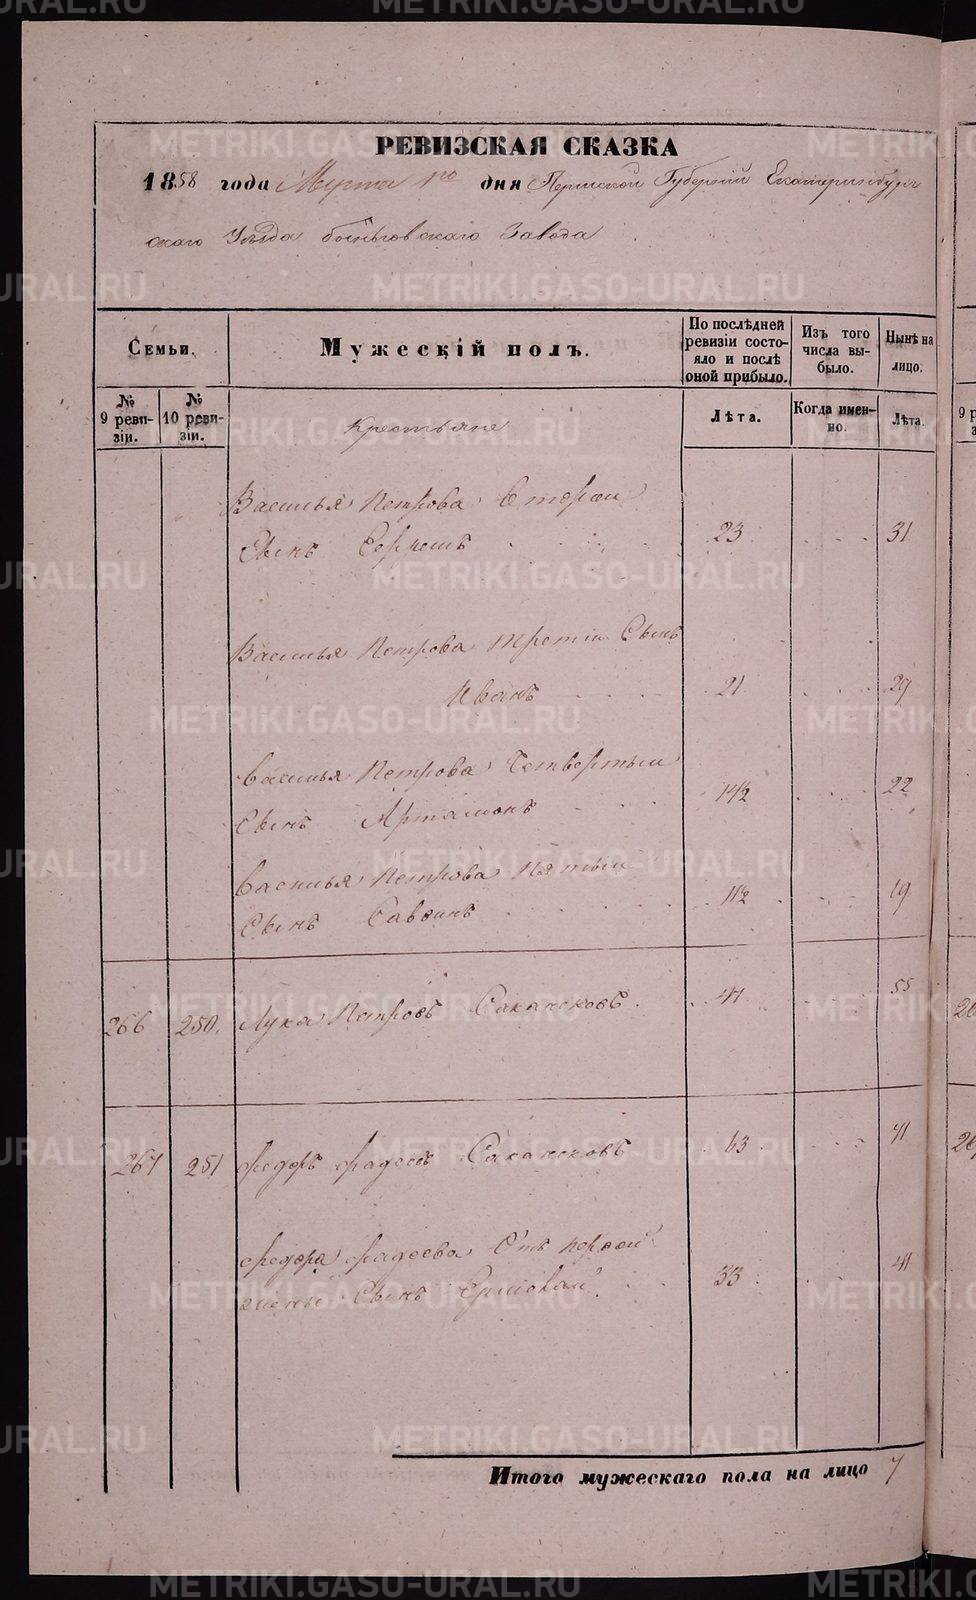 РЕВИЗСКАЯ СКАЗКА
1858 года Марта 1го дня Пермской Губерніи Екатеринбург
скаго Уѣзда Боинговскаго Завода
Семьи.
Мужескій полъ.
По послѣдней ревизіи состояло и послѣ оной прибыло.
Изъ того числа выбыло.
Нынѣ на лицо.
№ 9 ревизіи.
№ 10 ревизіи.
Крестьяне
Лѣта.
Когда именно.
Лѣта.
Василья Петрова Вторый
Сынъ Сергей 23 31
Василья Петрова третіи Сынъ
Иванъ 21 29
Василья Петрова Четвертыи
Сынъ Артамонъ 14½ 22
Василья Петрова Пятыи
Сынъ Саввинъ 11½ 19
266 250 Лука Петровъ 47 55
267 251 Федоръ Фадеевъ 63 41
Федора Фадеева Отъ первой
жены Сынъ Ермолай 33 41
Итого мужескаго пола на лицо 7
METRIKI.GASO-URAL.RU